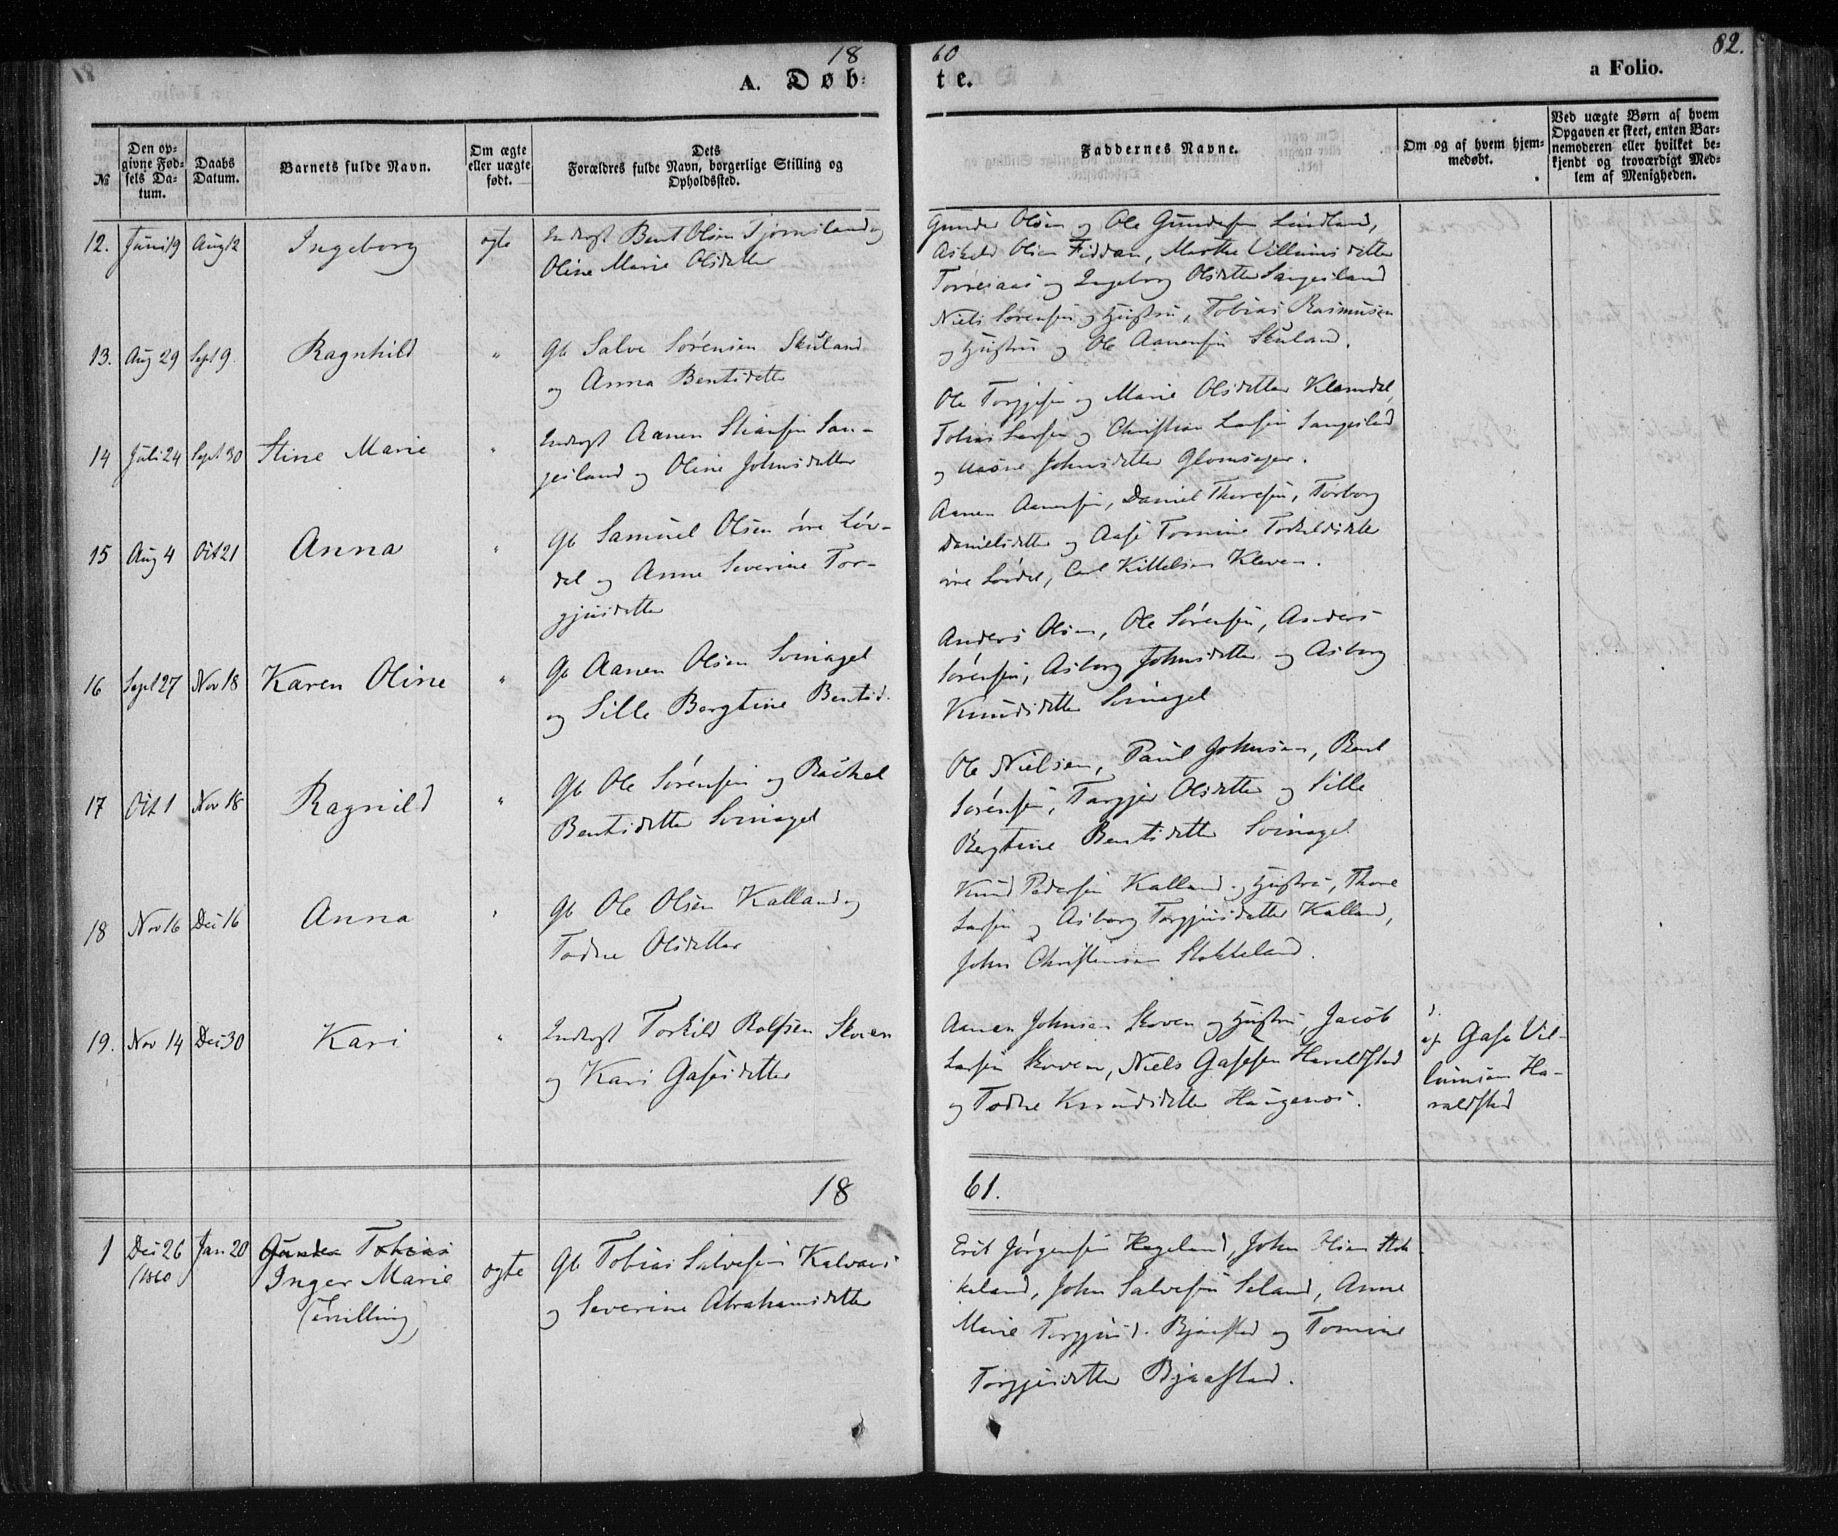 18 60 82.
A. Døb- te. a Folio.
№
Den op-
givne Fød-
sels Da-
tum.
Daabs
Datum.
Barnets fulde Navn.
Om ægte
eller uægte
født.
Dets
Forældres fulde Navn, borgerlige Stilling og
Opholdssted.
Faddernes Navne.
Om og af hvem hjem-
medøbt.
Ved uægte Børn af hvem
Opgaven er skeet, enten Bar-
nemoderen eller hvilket be-
kjendt og troværdigt Med-
lem af Menigheden.
12. Juni 19 Aug 12 Ingeborg ægte Indrgst Bent Olsen Tjomsland og
Oline Marie Olsdatter
Gunder Olsen og Ole Gundersen Lindland,
Askild Olsen Fiddan, Marthe Villumsdatter
og Ingeborg Olsdatter Sangesland
13. Aug 29 Sept 9. Ragnhild " Gb Salve Sørensen Skuland
og Anna Bentsdatter
Niels Sørensen og Hustru, Tobias Rasmussen
og Hustru og Ole Aanensen Skuland.
14 Juli 24 Sept 30 Stine Marie " Indrgst Aanen Stiansen San-
gesland og Oline Johnsdatter
Ole Torgjesen og Marie Olsdatter Kleundal,
Tobias Larsen og Christian Larsen Sangesland
og Johnsdatter Glomsager.
15 Aug 4 Oct 21 Anna " Gb Samuel Olsen øvre Lør-
del og Anne Severine Tor-
gjusdatter
Aanen Aanensen, Daniel Thoresen, Torborg
Danielsdatter og Aase Tomine Torkildsdatter
øvre Lørdel, Carl Kittelsen Kleven.
16 Sept 27 Nov 18 Karen Oline " Gb Aanen Olsen Svinagel
og Sille Bergtine Bentsd.
Anders Olsen, Ole Sørensen, Anders
Sørensen, Asborg Johnsdatter og Asborg
Knudsdatter Svinagel
17 Oct 1 Nov 18 Ragnild " Gb Ole Sørensen og Rachel
Bentsdatter Svinagel
Ole Nielsen, Paul Johnsen, Bent
Sørensen, Torgjer Olsdatter og Sille
Bergtine Bentsdatter Svinagel
18 Nov 16 Dec 16 Anna " Gb Ole Olsen Kalland og
Todne Olsdatter
Knud Pedersen Kalland og Hustru, Thore
Larsen og Asborg Torgjusdatter Kalland,
John Christensen Stokkeland.
19. Nov 14 Dec 30 Kari " Indrgst Torkild Rolfsen Skoven
og Kari Gasesdatter
Aanen Johnsen Skoven og Hustru, Jacob
Larsen Skoven, Niels Gasesen Haraldstad
og Todne Knudsdatter Haugenes.
af Gase Vil-
lumsen Ha-
raldstad
18 61.
1 Dec 26 Jan 20 Gunder Tobias
1860 Inger Marie
(Tvilling)
ægte Gb Tobias Salvesen Kalvaas
og Severine Abrahamsdatter
Erik Jørgensen Hageland, John Olsen Stok-
keland, John Salvesen Seland, Anne
Marie Torgjusd. Bjaastad og Tomine
Torgjusdatter Bjaastad.